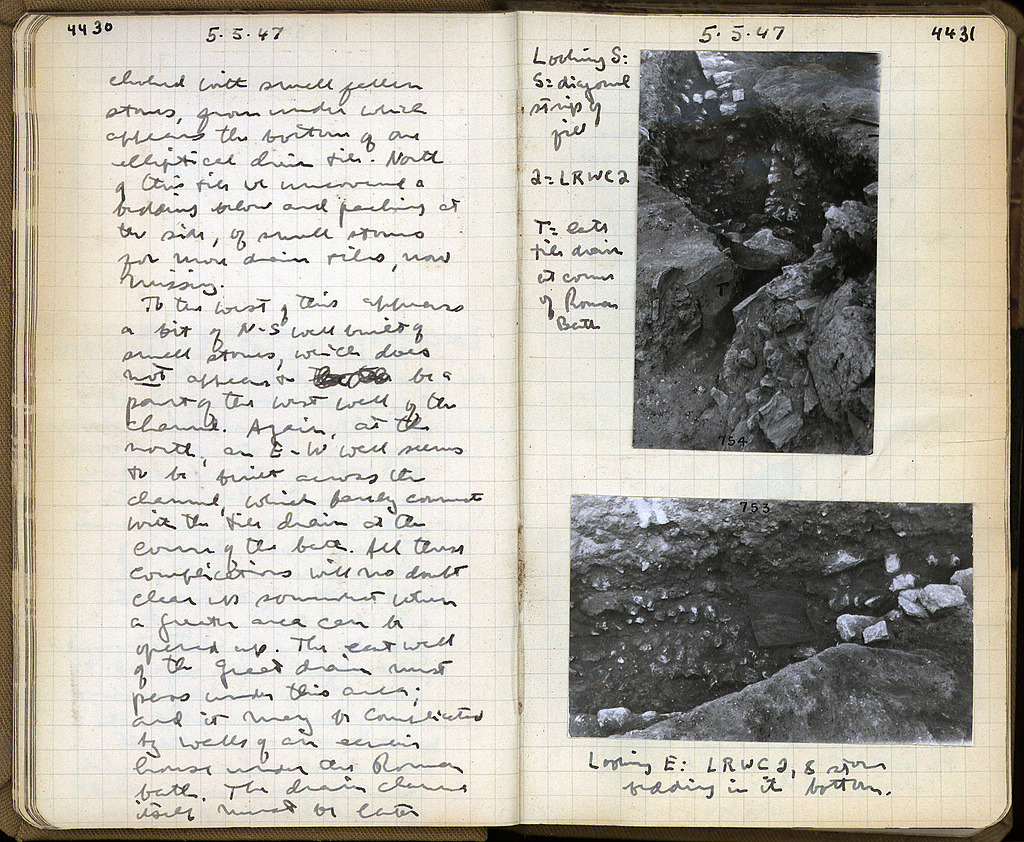 4430
5.5.47
choked with small fallen
stones, from under which
appears the bottom of one
elliptical drain tile. North
of this tile we uncovered a
bedding below and packing at
the side, of small stones
for more drain tiles, now
missing.
To the west of this appears
a bit of N-S wall built of
small stones, which does
not appear to be a
part of the west wall of the
channel. Again, at the
north, an E-W wall seems
to be built across the
channel, which connect
with the tile drain at the
corner of the bath. All these
complications will no doubt
clear up somewhat when
a greater area can be
opened up. The east wall
of the great drain must
pass under this area;
and it may be complicated
by walls of an
house under the Roman
bath. The drain channel
itself must be later
5.5.47
4431
Looking S:
S = diagonal
strip of
fill
2 = LRWC2
T = late
tile drain
at corner
of Roman
Bath
T
754
753
Looking E: LRWC2, & stone
bedding in its bottom.